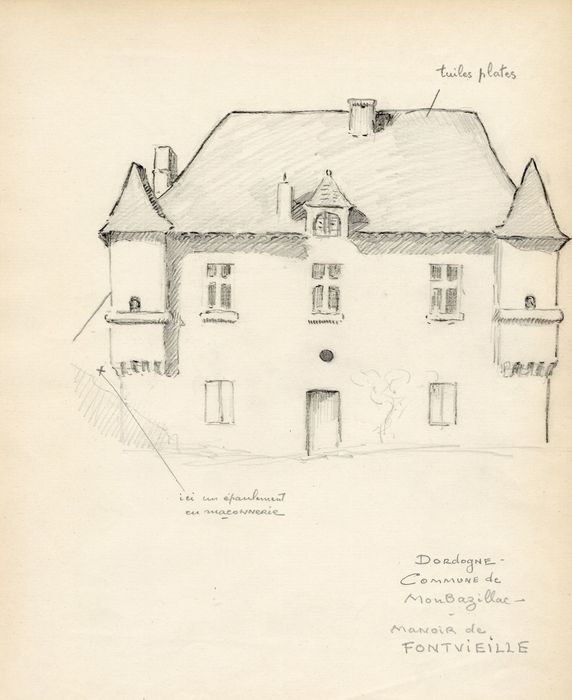 tuiles plates
ici un épaulement
en maçonnerie
Dordogne -
Commune de
MonBazillac -
-
Manoir de
FONTVIEILLE